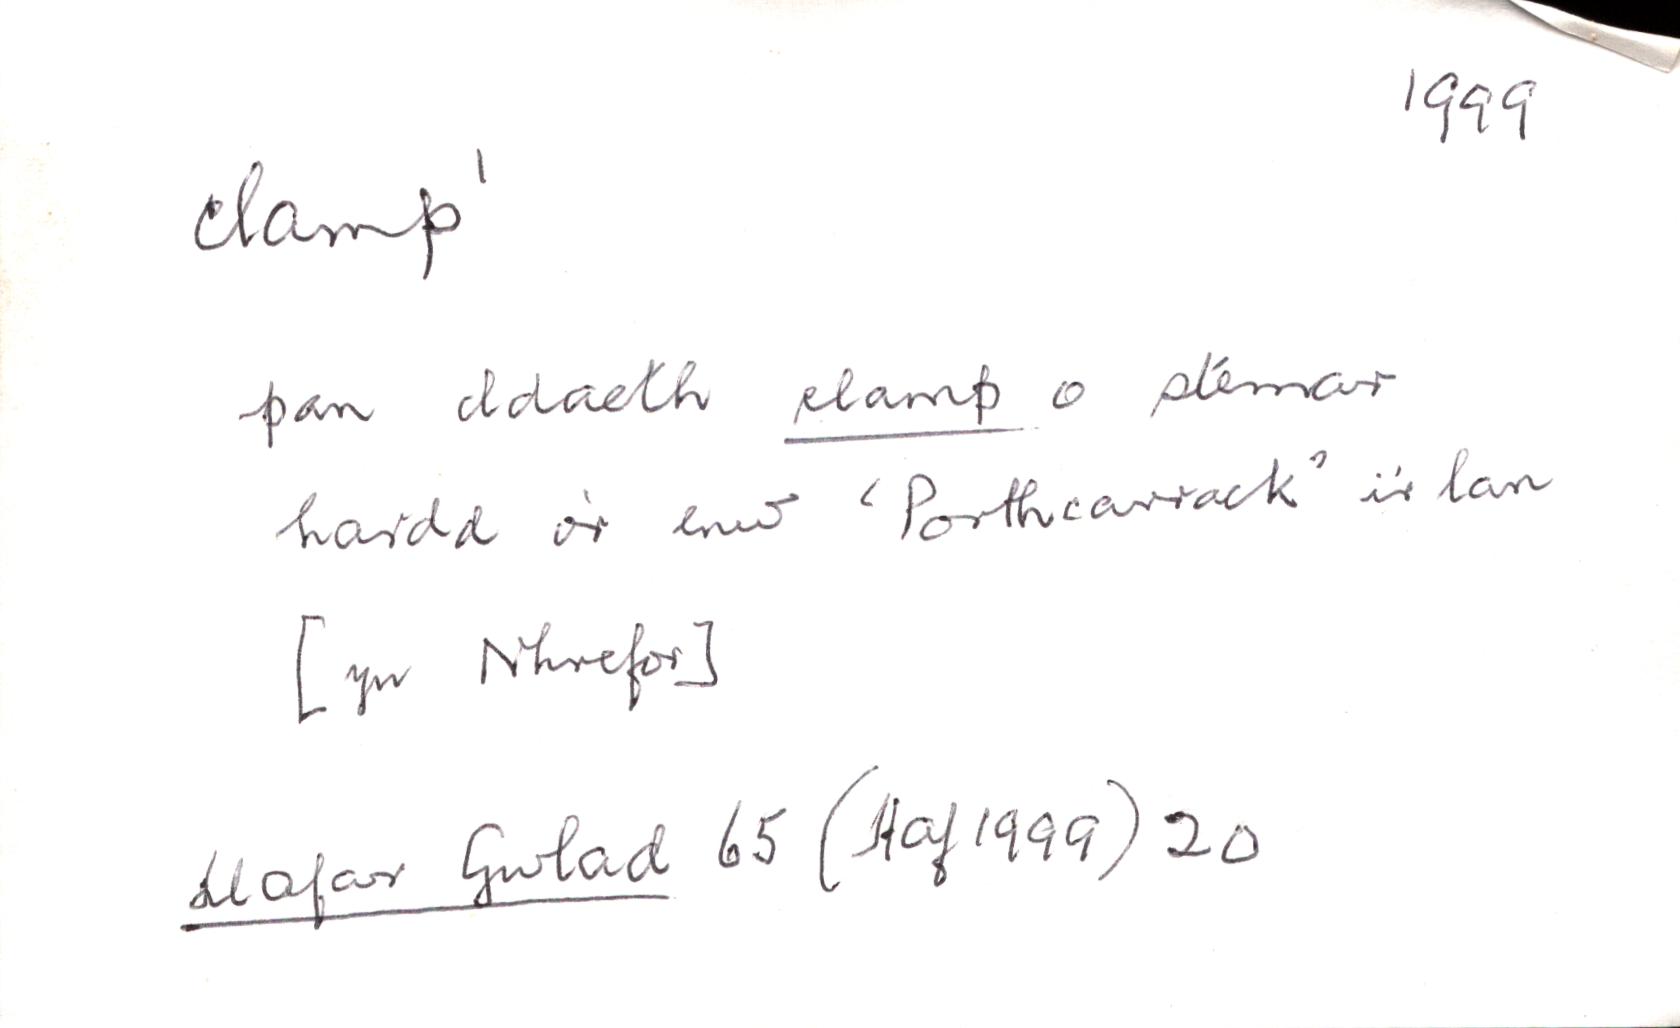 1999
clamp¹
pan ddaeth clamp o stemar
hardd o'r enw ‘Porthcarrack’ i'r lan
[yn Nhrefor]
Llafar Gwlad 65 (Haf 1999) 20